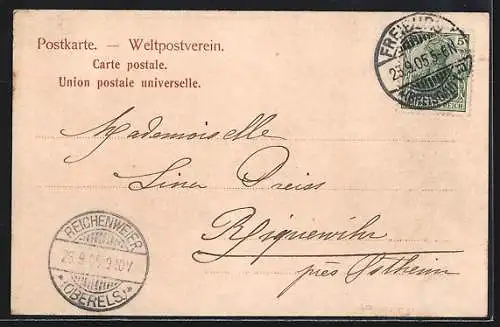 Postkarte. — Weltpostverein.
Carte postale.
Union postale universelle.
FREIBURG
23.9.05.5-6N
5
REICH
Mademoiselle
Lina Preiss
Riquewihr
près Ostheim
REICHENWEIER
23.9.05.9-10V
*(OBERELS.)*